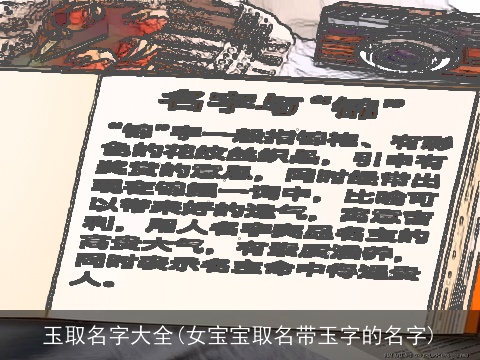 名字与“锦”
“锦”字一般指锦袍、有彩
色的花纹丝织品，引申有
美贤的意思，同时还带出
现在锦鲤一词中，比喻可
以带来好的运气，寓意吉
利，用人名字突显名主的
高贵大气，有素质涵养，
同时表示名主命中得遇贵
人。
玉取名字大全(女宝宝取名带玉字的名字)